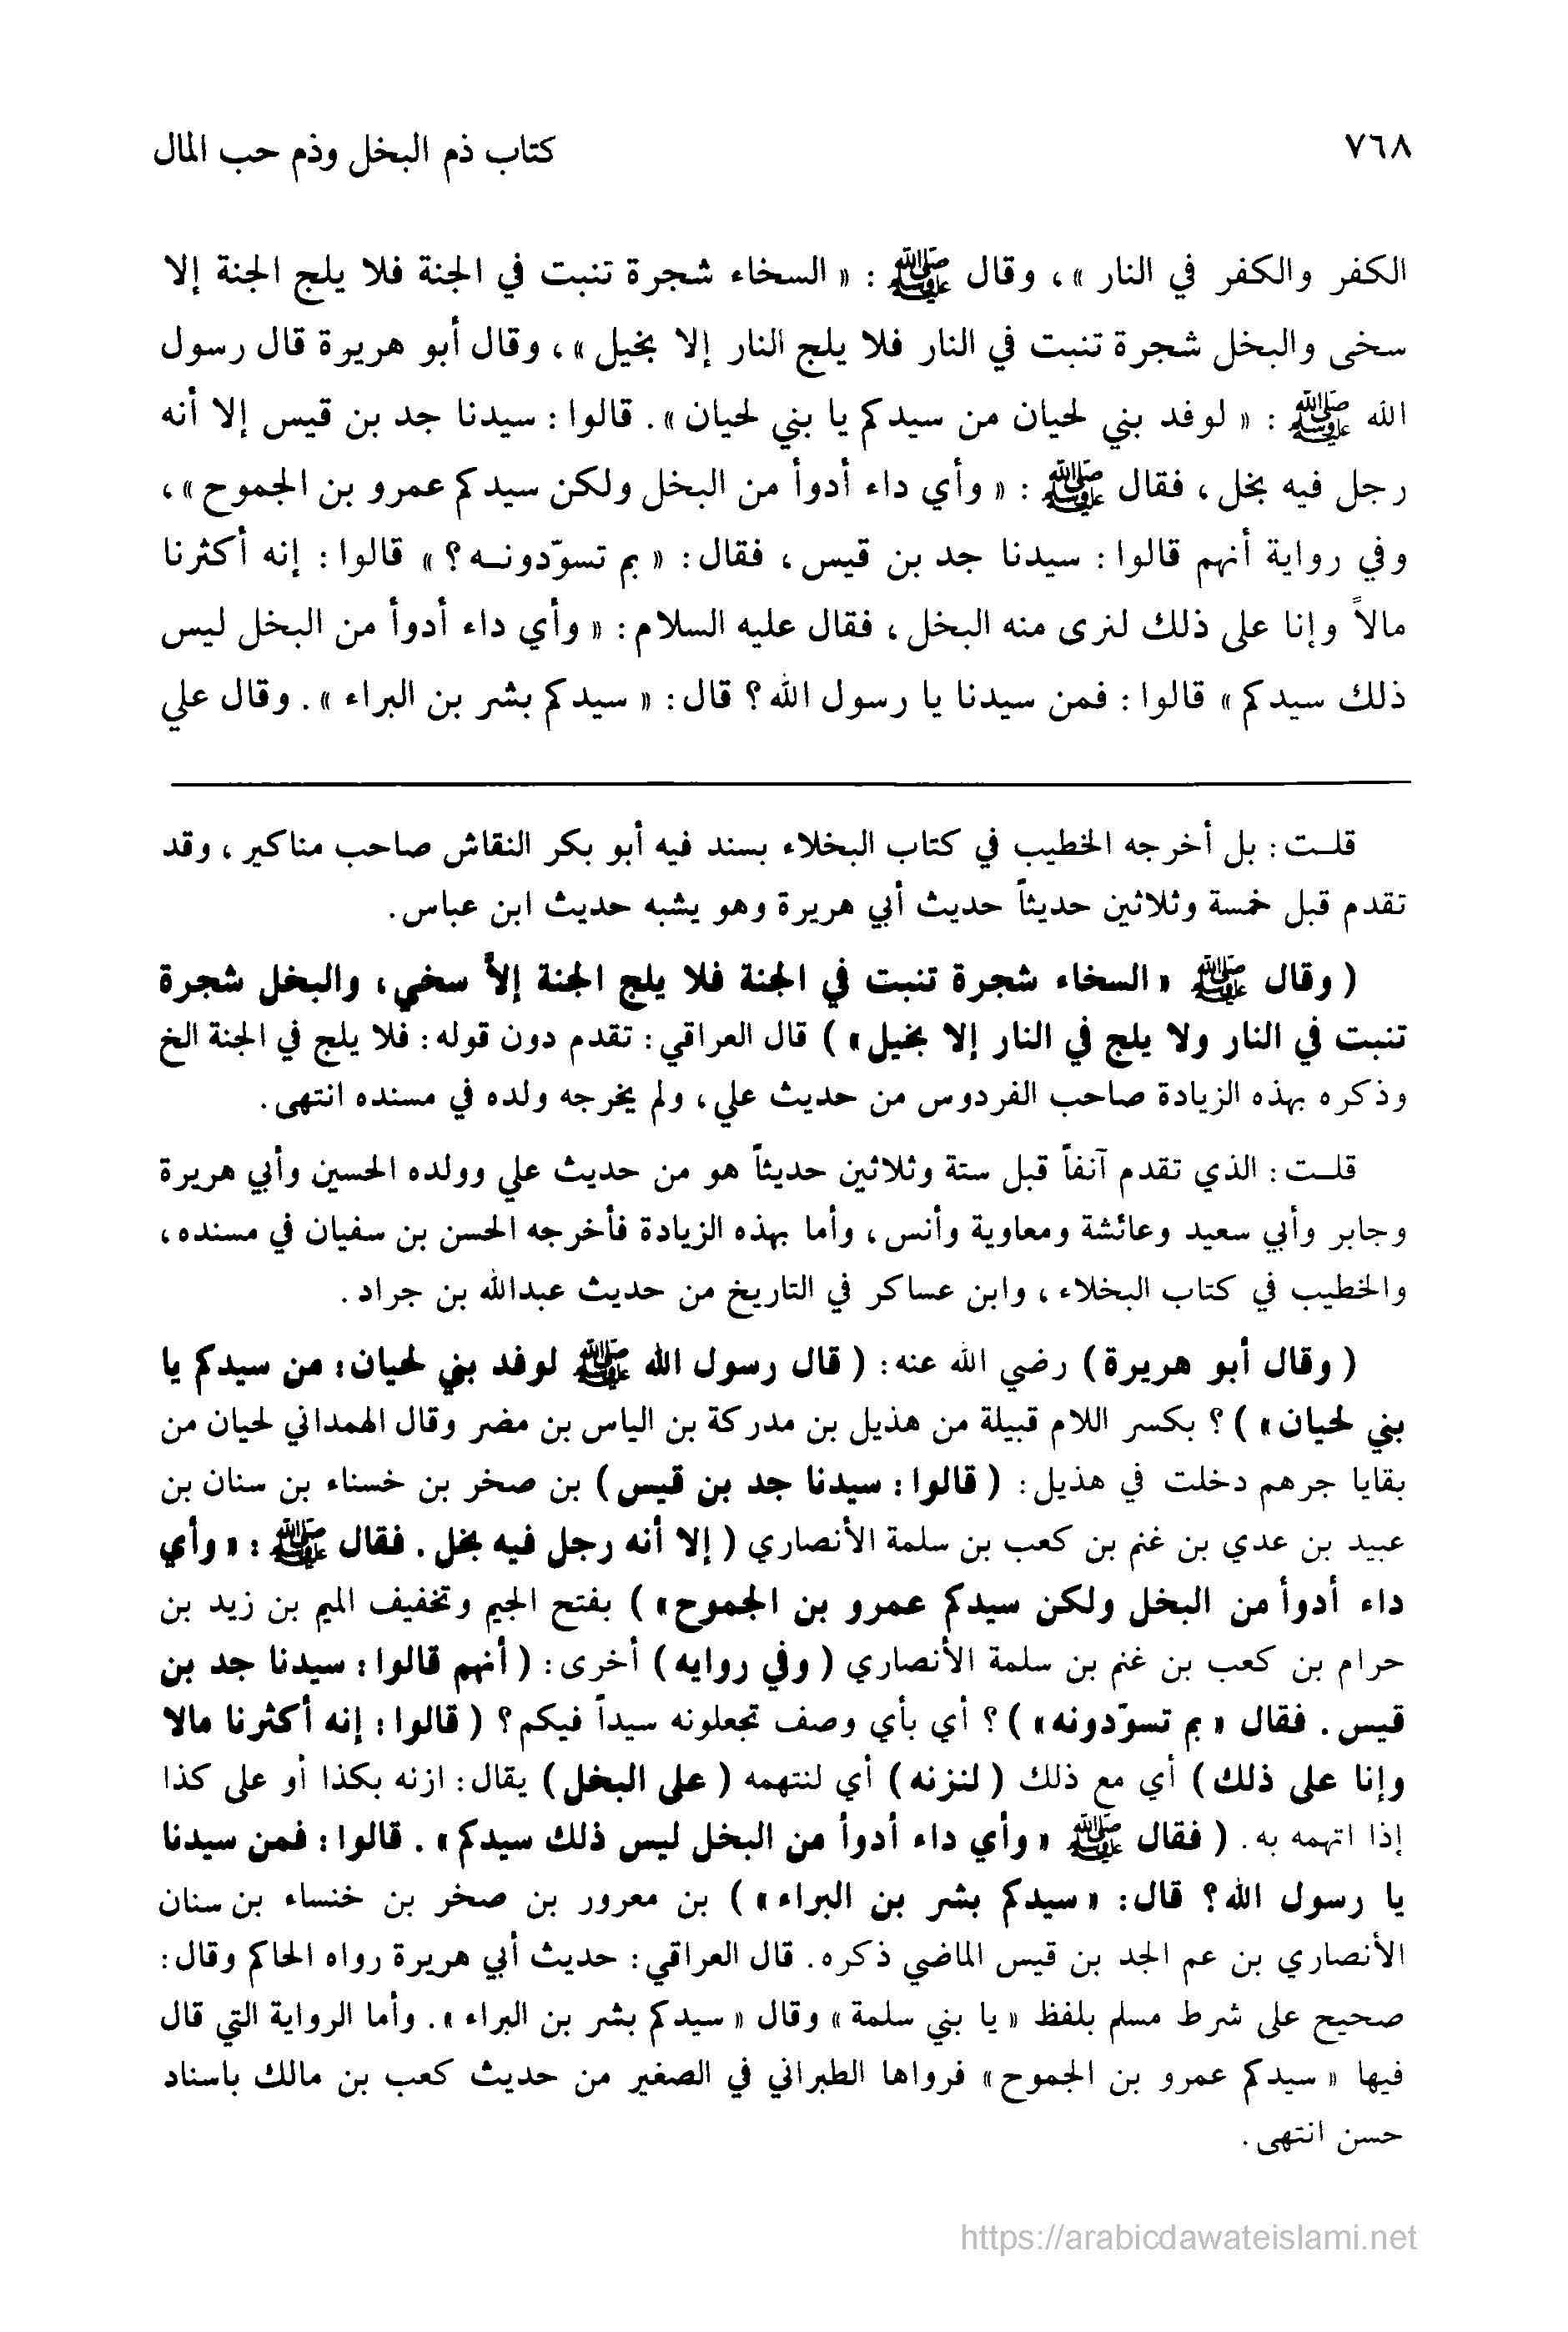 ٧٦٨
كتاب ذم البخل وذم حب المال
الكفر والكفر في النار »، وقال ﷺ : « السخاء شجرة تنبت في الجنة فلا يلج الجنة إلا
سخى والبخل شجرة تنبت في النار فلا يلج النار إلا بخيل »، وقال أبو هريرة قال رسول
الله ﷺ : « لوفد بني لحيان من سيدكم يا بني لحيان ». قالوا : سيدنا جد بن قيس إلا أنه
رجل فيه بخل، فقال ﷺ : « وأي داء أدوأ من البخل ولكن سيدكم عمرو بن الجموح »،
وفي رواية أنهم قالوا : سيدنا جد بن قيس، فقال : « بم تسوّدونـه ؟ » قالوا : إنه أكثرنا
مالاً وإنا على ذلك لنرى منه البخل، فقال عليه السلام : « وأي داء أدوأ من البخل ليس
ذلك سيدكم » قالوا : فمن سيدنا يا رسول الله؟ قال : « سيدكم بشر بن البراء ». وقال علي
قلـت : بل أخرجه الخطيب في كتاب البخلاء بسند فيه أبو بكر النقاش صاحب مناكير، وقد
تقدم قبل خمسة وثلاثين حديثاً حديث أبي هريرة وهو يشبه حديث ابن عباس.
( وقال ﷺ « السخاء شجرة تنبت في الجنة فلا يلج الجنة إلاّ سخي، والبخل شجرة
تنبت في النار ولا يلج في النار إلا بخيل » ) قال العراقي : تقدم دون قوله : فلا يلج في الجنة الخ
وذكره بهذه الزيادة صاحب الفردوس من حديث علي، ولم يخرجه ولده في مسنده انتهى.
قلـت : الذي تقدم آنفاً قبل ستة وثلاثين حديثاً هو من حديث علي وولده الحسين وأبي هريرة
وجابر وأبي سعيد وعائشة ومعاوية وأنس، وأما بهذه الزيادة فأخرجه الحسن بن سفيان في مسنده،
والخطيب في كتاب البخلاء، وابن عساكر في التاريخ من حديث عبدالله بن جراد.
( وقال أبو هريرة ) رضي الله عنه : ( قال رسول الله ﷺ لوفد بني لحيان : من سيدكم يا
بني لحيان » ) ؟ بكسر اللام قبيلة من هذيل بن مدركة بن الياس بن مضر وقال الهمداني لحيان من
بقايا جرهم دخلت في هذيل : ( قالوا : سيدنا جد بن قيس ) بن صخر بن خسناء بن سنان بن
عبيد بن عدي بن غنم بن كعب بن سلمة الأنصاري ( إلا أنه رجل فيه بخل. فقال ﷺ : « وأي
داء أدوأ من البخل ولكن سيدكم عمرو بن الجموح » ) بفتح الجيم وتخفيف الميم بن زيد بن
حرام بن كعب بن غنم بن سلمة الأنصاري ( وفي روايه ) أخرى : ( أنهم قالوا : سيدنا جد بن
قيس. فقال « بم تسوّدونه » ) ؟ أي بأي وصف تجعلونه سيداً فيكم؟ ( قالوا : إنه أكثرنا مالا
وإنا على ذلك ) أي مع ذلك ( لنزنه ) أي لنتهمه ( على البخل ) يقال : ازنه بكذا أو على كذا
إذا اتهمه به. ( فقال ﷺ « وأي داء أدوأ من البخل ليس ذلك سيدكم ». قالوا : فمن سيدنا
يا رسول الله؟ قال : « سيدكم بشر بن البراء » ) بن معرور بن صخر بن خنساء بن سنان
الأنصاري بن عم الجد بن قيس الماضي ذكره. قال العراقي : حديث أبي هريرة رواه الحاكم وقال :
صحيح على شرط مسلم بلفظ « يا بني سلمة » وقال « سيدكم بشر بن البراء ». وأما الرواية التي قال
فيها « سيدكم عمرو بن الجموح » فرواها الطبراني في الصغير من حديث كعب بن مالك باسناد
حسن انتهى.
https://arabicdawateislami.net